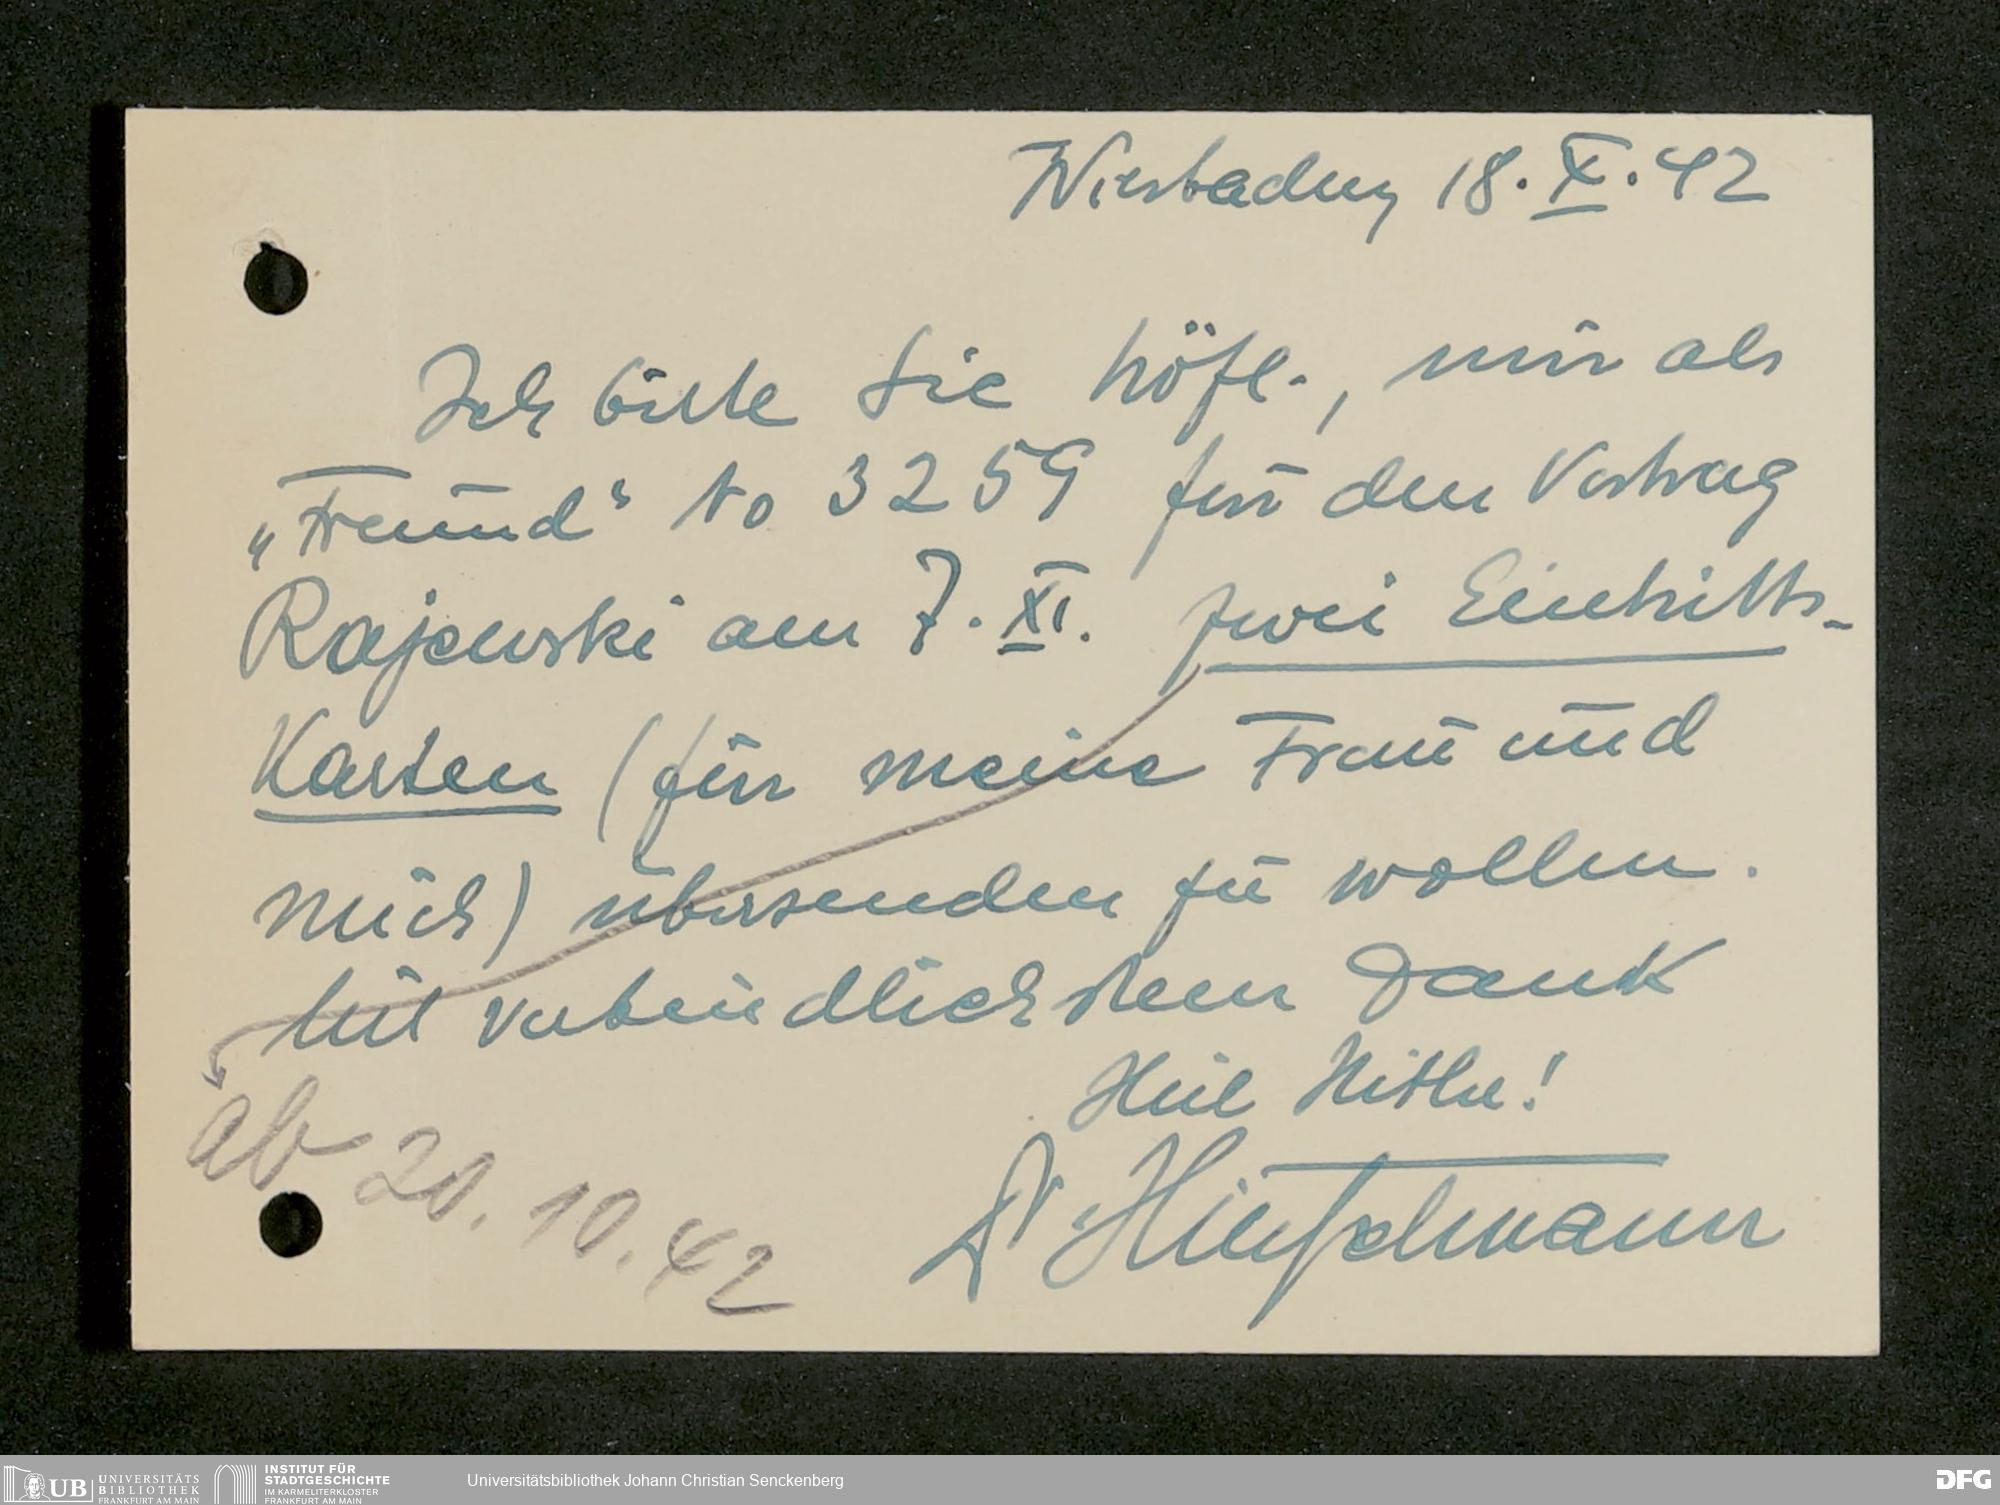 Wiesbaden, 18. X. 42
Ich bitte Sie höfl., mir als
„Freund“ No 3259 für den Vortrag
Rajewski am 7. XI. zwei Eintritts-
Karten (für meine Frau und
mich) übersenden zu wollen.
Mit verbindlichstem Dank
Heil Hitler!
Dr
ab 20.10.42
UB UNIVERSITÄTS
BIBLIOTHEK
FRANKFURT AM MAIN
INSTITUT FÜR
STADTGESCHICHTE
IM KARMELITERKLOSTER
FRANKFURT AM MAIN
Universitätsbibliothek Johann Christian Senckenberg
DFG